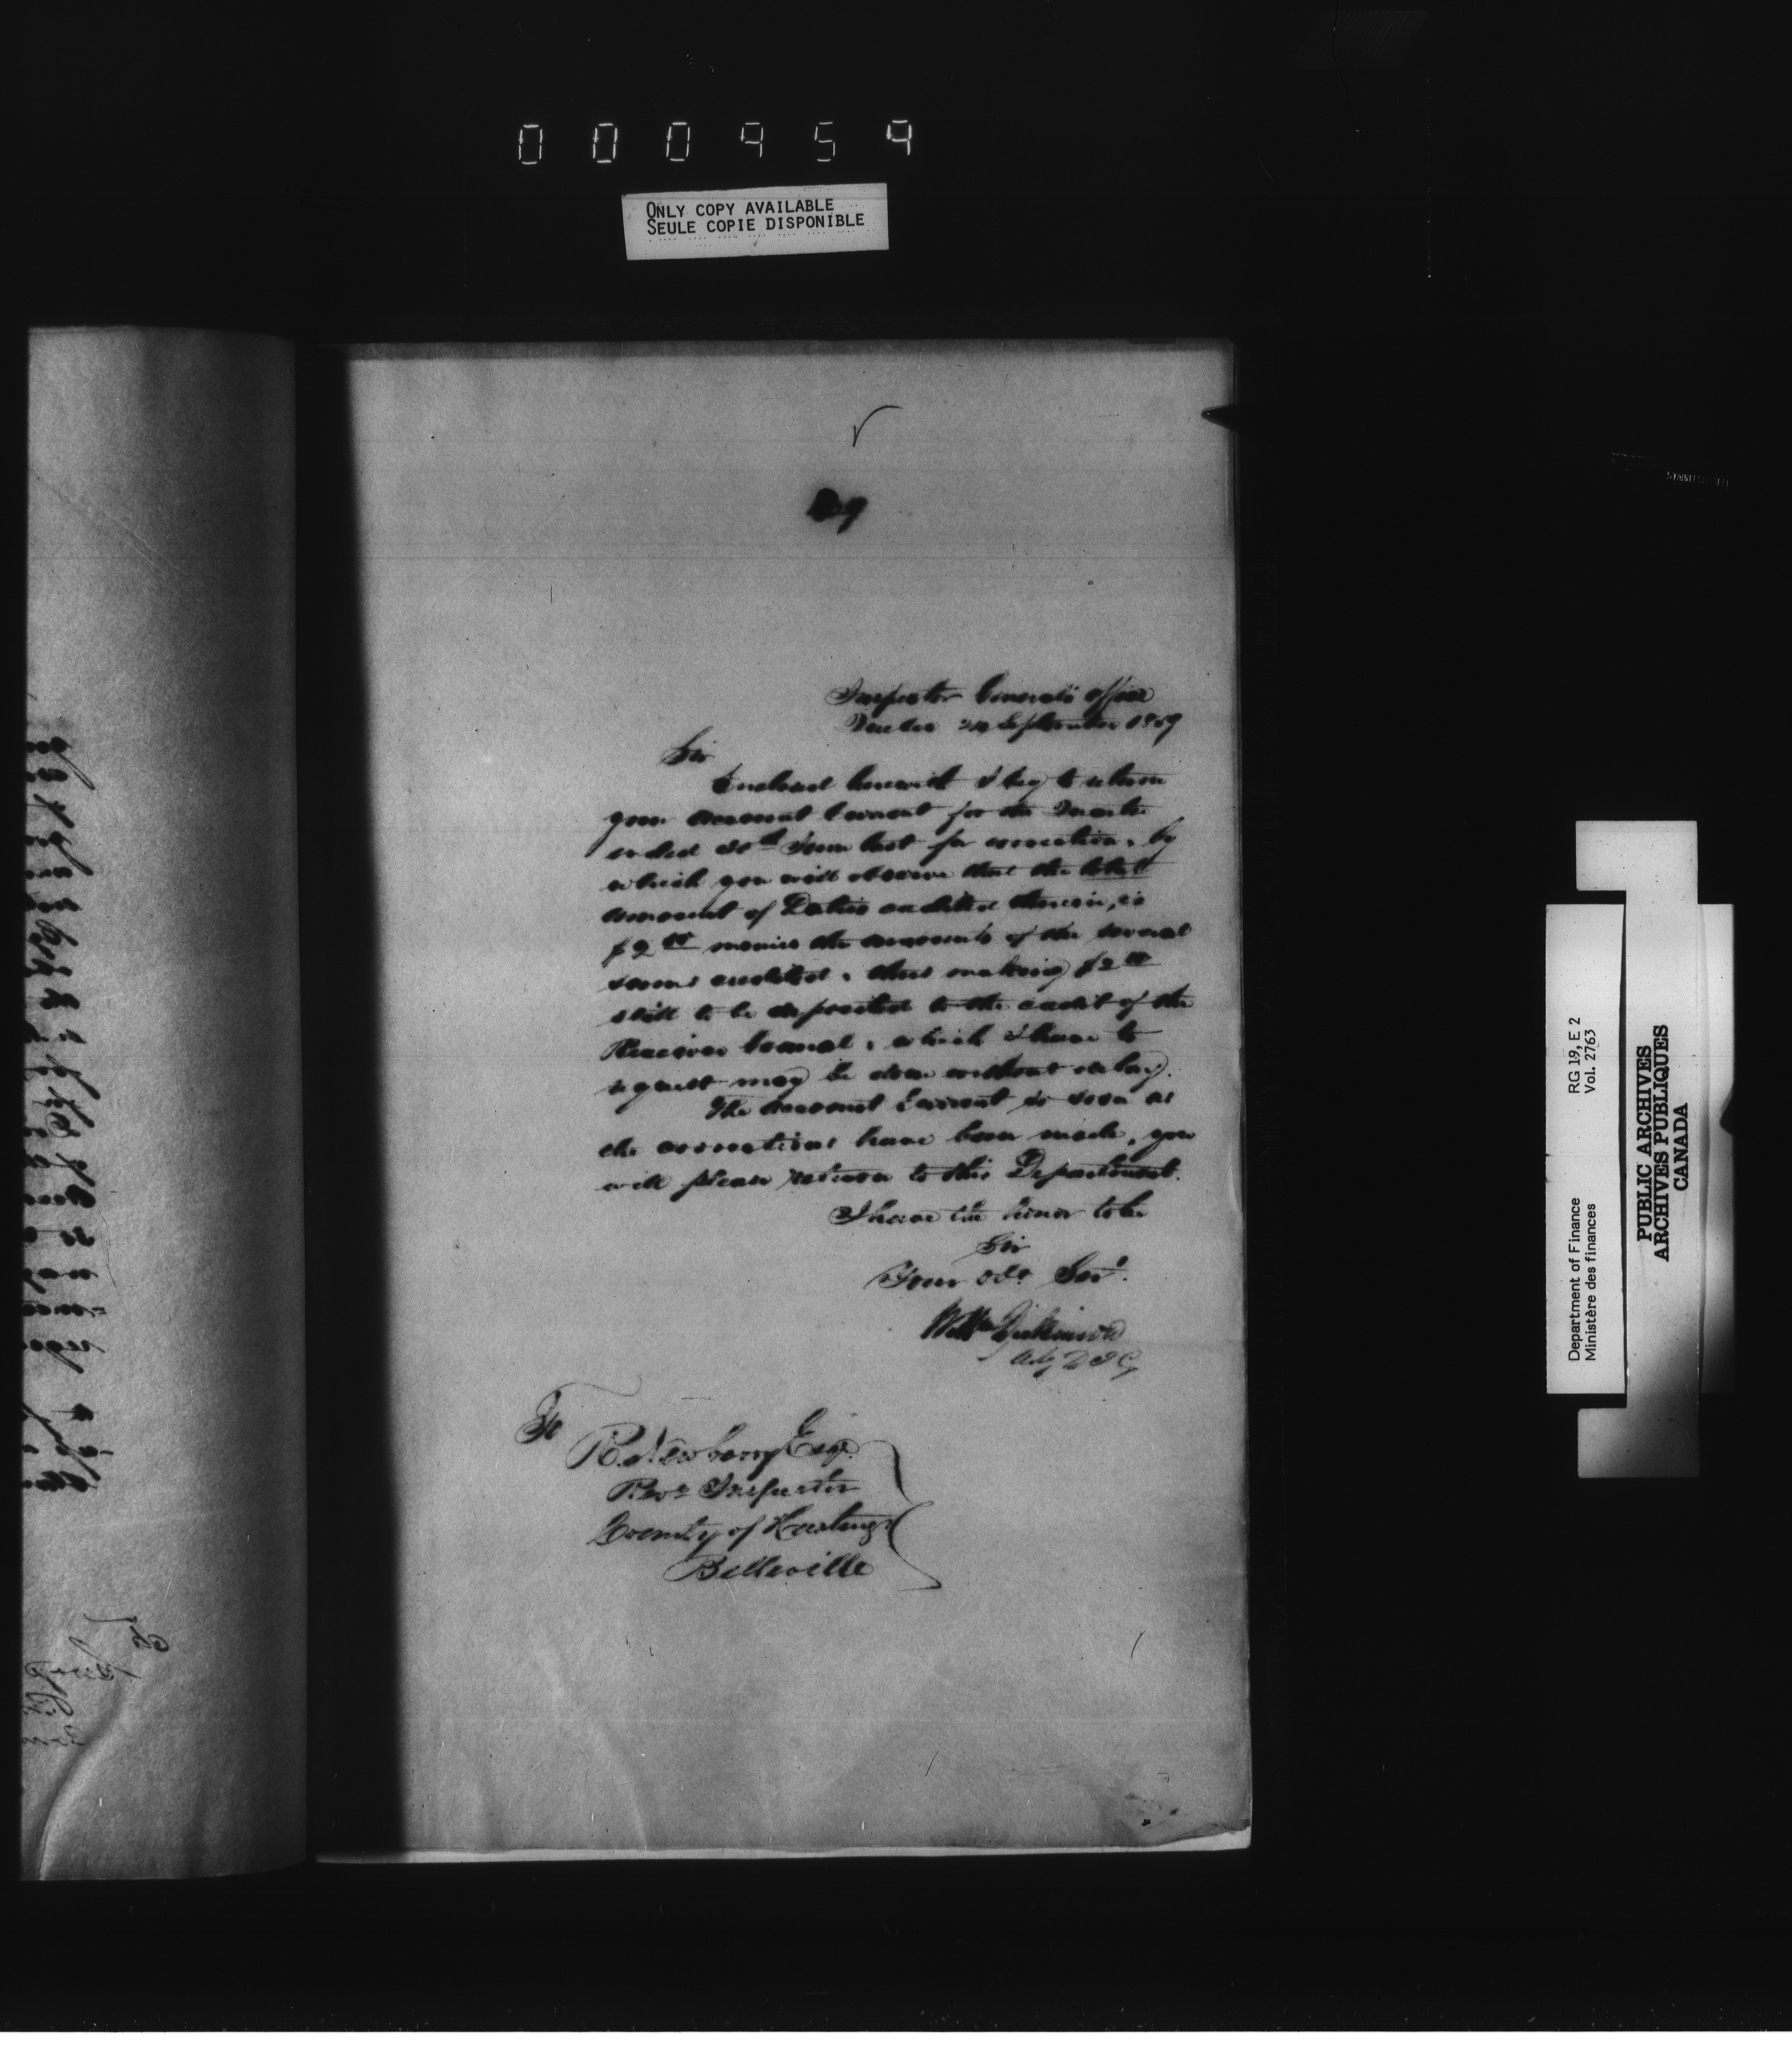 000954
ONLY COPY AVAILABLE
SEULE COPIE DISPONIBLE
Inspector General's Office
Quebec 24 September 1859
Sir
Enclosed herewith I beg to return
your Account Current for the Quarter
ended 30th June last for correction, by
which you will observe that the total
amount of Duties credited therein, is
$2 00 minus the amounts of the several
sums credited, thus making $2 00
still to be deposited to the credit of the
Receiver General, which I have to
request may be done without delay.
The Account Current so soon as
the corrections have been made, you
will please return to this Department.
I have the honor to be
Sir
Your Obt Servt
Wm Dickinson
Actg D I G
To
R. Newberry Esqr
Reve Inspector
County of Hastings
Belleville
Department of Finance RG 19, E 2
Ministère des finances Vol. 2763
PUBLIC ARCHIVES
ARCHIVES PUBLIQUES
CANADA